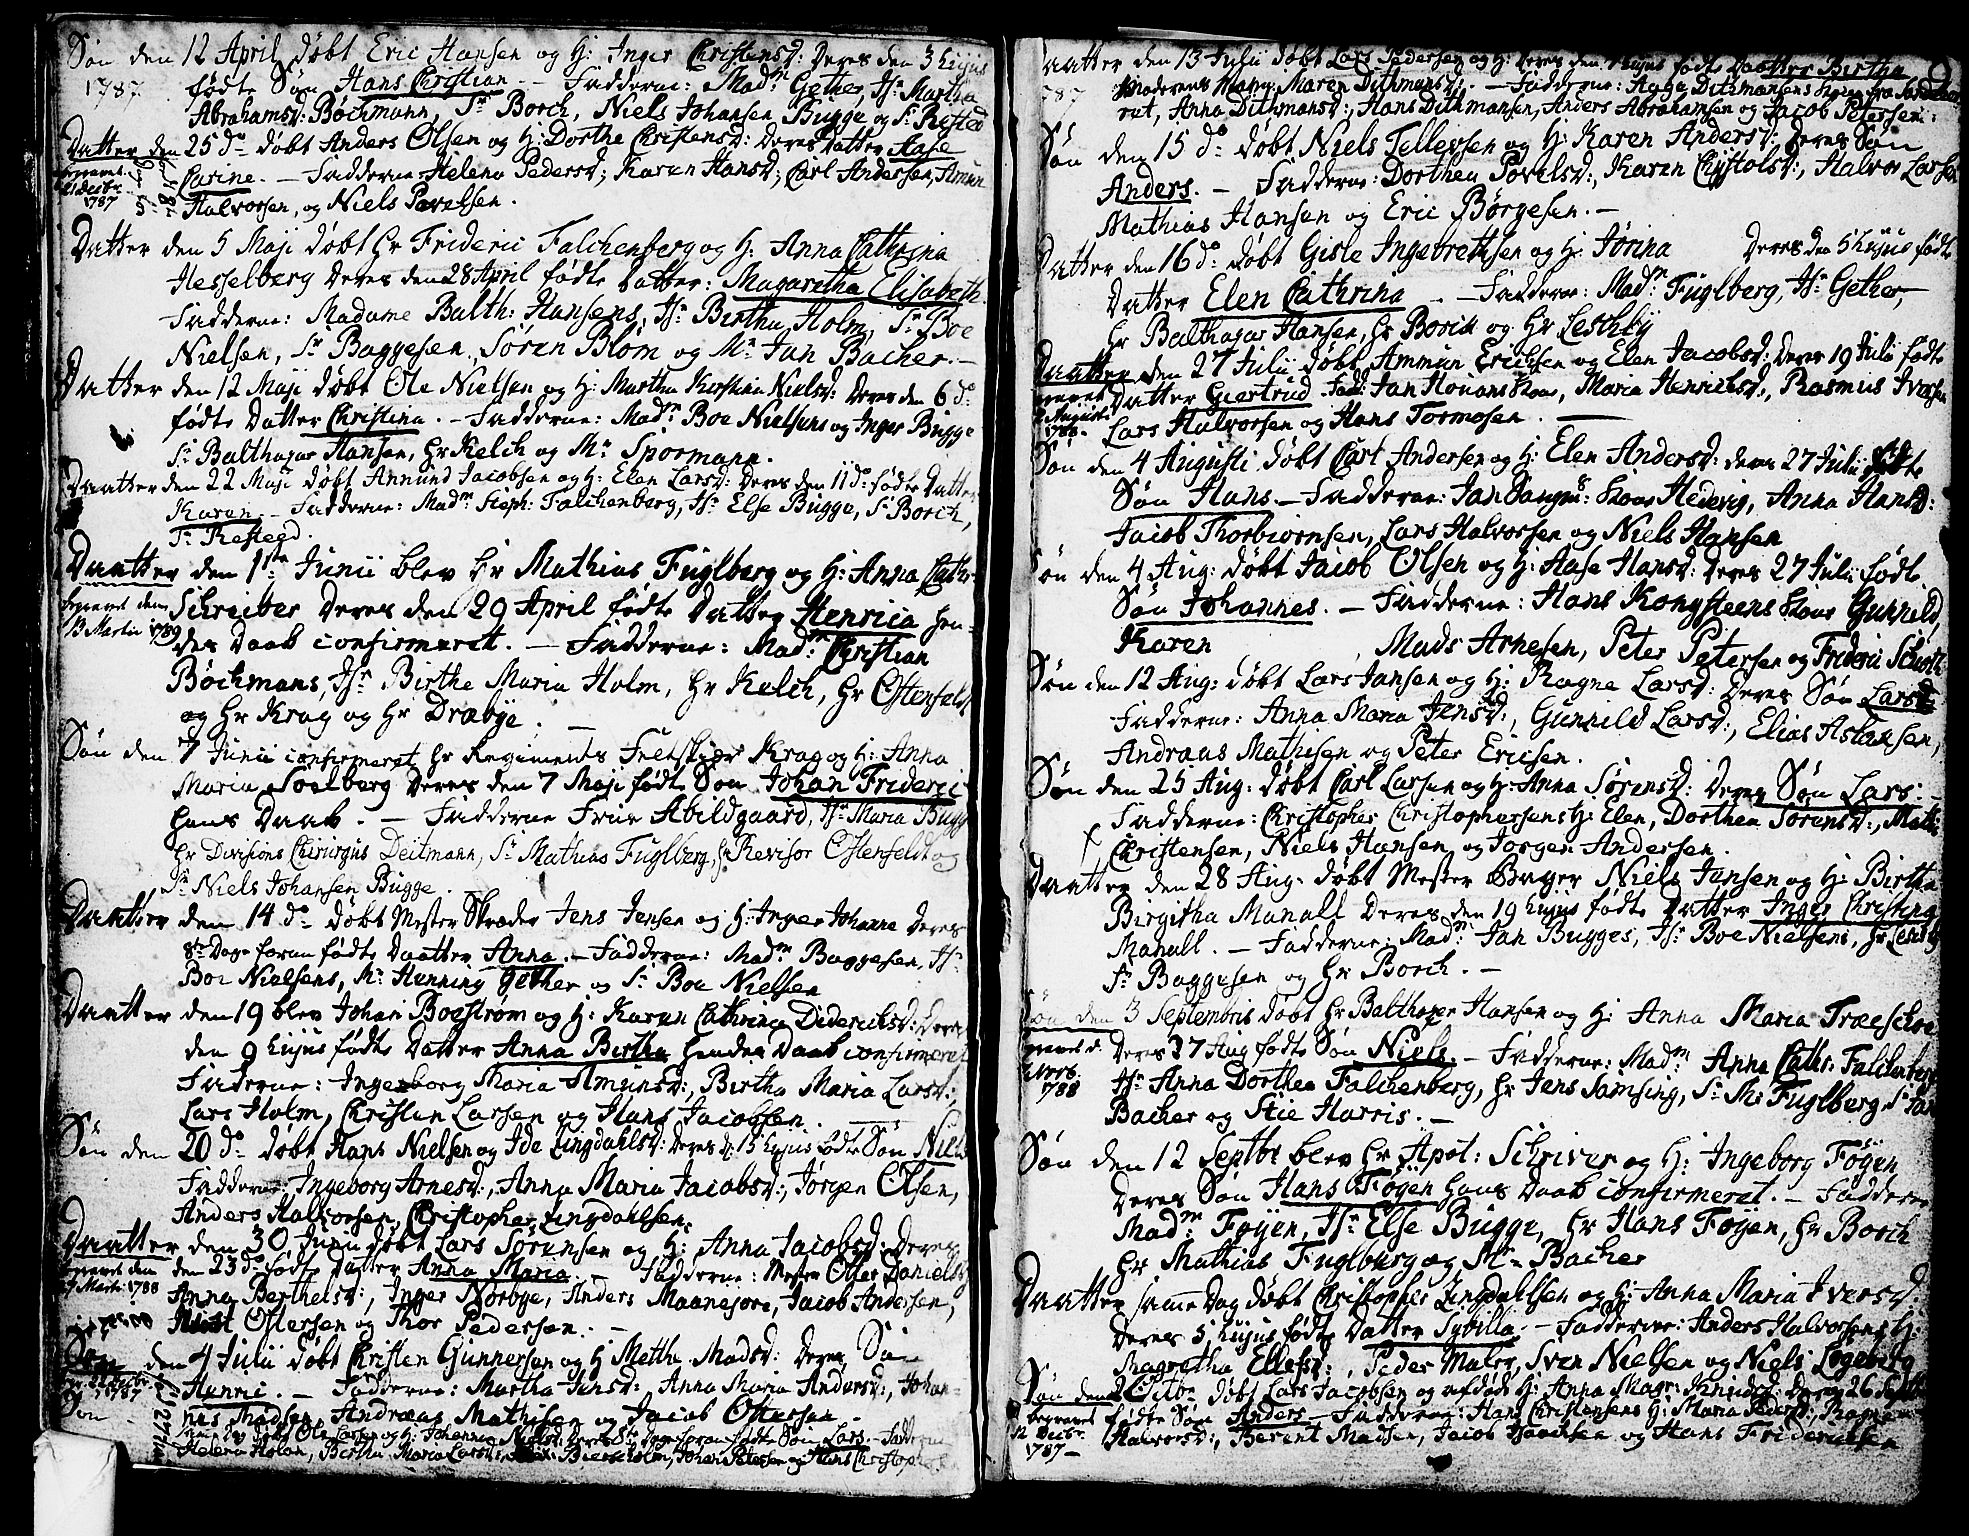 Søn den 12 April døbt Eric Hansen og H: Inger Christensd: Deres den 3 hujus
1787. fødte Søn Hans Christian. – Fadderne: Madm Gether, Jfr Martha
Abrahamsd: Bøchmann, Sr Borch, Niels Johansen Bugge og Sr Resteed
Datter den 25 do døbt Anders Olsen og H: Dorthe Christensd: Deres Datter Aase
begravet 21 Decbr. 1787
Carine. – Fadderne: Helena Pedersd:, Karen Hansd:, Carl Andersen, Amun
Halvorsen, og Niels Povelsen.
Datter den 5 Maji døbt Hr Frideric Falchenberg og H: Anna Cathrina
Hesselberg Deres den 28 April fødte Datter: Magaretha Elisabeth.
Fadderne: Madame Balth: Hansens, Jfr Birtha Holm, Sr Boe
Nielsen, Sr Baggesen, Søren Blom og Mr Jan Bacher. –
Datter den 12 Maji døbt Ole Nielsen og H: Martha Kirstina Nielsd: Deres den 6 do
fødte Datter Christina. – Fadderne: Madm Boe Nielsens og Inger Bugge
Sr Balthazar Hansen, Hr Kelch og Mr Spormann.
Daatter den 22 Maji døbt Annund Jacobsen og H: Elen Larsd: Deres den 11 do fødte Datter
Karen. – Fadderne: Madm Steph: Falchenberg, Jfr Else Bugge, Sr Borch,
Sr Resteed.
Daatter den 1ste Junii blev Hr Mathias Fuglberg og H: Anna Cathr:
begravet den 13 Martii 1789
Schreiber Deres den 29 April fødte Datter Henrica hen-
des Daab confirmeret. – Fadderne: Madm Christian
Bøchmans, Jfr Birthe Maria Holm, Hr Kelch, Hr Ostenfeldt
og Hr Krag og Hr Drabye. –
Søn den 7 Junii confirmeret Hr Regiments Feltskier Krag og H: Anna
Maria Soelberg Deres den 7 Maji født Søn Johan Frideric
hans Daab. – Fadderne Frue Abildgaard, Jfr Maria Bugge
Hr Divisions Chirurgus Deitmann, Sr Mathias Fuglberg, Hr Revisor Ostenfeldt og
Sr Niels Johansen Bugge.
Daatter den 14 do døbt Mester Skræder Jens Jensen og H: Inger Johanne Deres
8te Dage foran fødte Daatter Anna. – Fadderne: Madm Baggesen, Jfr
Boe Nielsens, Mr Henning Gether og Sr Boe Nielsen
Daatter den 19 blev Johan Bogstrøm og H: Karen Cathrine Didericksd: Deres
den 9 hujus fødte Datter Anna Birtha hendes Daab confirmeret
Fadderne: Ingeborg Maria Amunsd:, Birtha Maria Larsd:,
Lars Holm, Christen Larsen og Hans Jacobsen.
Søn den 20 do døbt Hans Nielsen og Ide Lingdahlsd: Deres d: 15 hujus fødte Søn Niels
Fadderne: Ingeborg Arnesd:, Anna Maria Jacobsd:, Jørgen Olsen,
Anders Halvorsen, Christopher Lingdahlsen.
Daatter den 30 Junii døbt Lars Sørensen og H: Anna Jacobsd: Deres
begravet den 7 Martii 1788
den 23 do fødte Datter Anna Maria. – Fadderne: Mester Otter Danielsd:
Anna Berthelsd:, Inger Norbye, Anders Maanejore, Jacob Andersen,
Ottersen og Thor Pedersen. –
Søn den 4 Julii døbt Christen Gunnersen og H Mette Madsd: Deres Søn
1787
Henric. – Fadderne: Martha Jensd: Anna Maria Andersd:, Johan-
nes Madsen, Andreas Mathisen og Jacob Ottersen.
Søn døbt Ole Larsen og H: Johanna Nielsd: Deres fødte Søn Lars. – Fadderne
Helena Holm, Birtha Maria Larsd:, Bierkeholm, Johan Petersen og Hans Christophersen
Daatter den 13 Julii døbt Lars Pedersen og H: Deres den 7 hujus fødte Daatter Birtha
1787
Maren Dithmansd: – Fadderne: Aasa Dithmansens
rut, Anna Dithmansd:, Hans Dithmansen, Anders Abrahamsen og Jacob Petersen.
Søn den 15 do døbt Niels Tellevsen og H: Karen Andersd: Deres Søn
Anders. – Fadderne: Dorthea Povelsd:, Karen Christolsd:, Halvor Larsen
Mathias Hansen og Eric Børgesen. –
Datter den 16 do døbt Gisle Ingebrethsen og H: Jorina Deres den 5 hujus fødte
Datter Elen Cathrina. – Fadderne: Madm Fuglberg, Jfr Gether,
Hr Balthazar Hansen, Hr Borch og Hr Leschly
Daatter den 27 Julii døbt Ammun Erichsen og Elen Jacobsd: Deres 19 Julii fødte
begravet Augusti 1788.
Datter Giertrud. Fad: Jan Hovans Kone, Maria Henrichsd:, Rasmus Iversen
Lars Halvorsen og Hans Tormosen.
Søn den 4 Augusti døbt Carl Andersen og H: Elen Andersd: deres 27 Julii fødte
Søn Hans – Fadderne: Jan Kone Hedevig, Anna Hansd:
Jacob Thorbiørnsen, Lars Halvorsen og Niels Hansen
Søn den 4 Aug: døbt Jacob Olsen og H: Aase Hansd: Deres 27 Julii fødte
Søn Johannes. – Fadderne: Hans Kongsteens Kone Gunnild,
Karen Mads Arnesen, Peter Petersen og Frideric Schwartz
Søn den 12 Aug: døbt Lars Jansen og H: Ragne Larsd: Deres Søn Lars
Fadderne: Anna Maria Jensd:, Gunnild Larsd:, Elias Aslansen,
Andreas Mathisen og Peter Ericsen.
Søn den 25 Aug: døbt Carl Larsen og H: Anna Sørensd: Deres Søn Lars. –
Fadderne: Christopher Christophersens H: Elen, Dorthea Sørensd:, Mathis
Christensen, Niels Hansen og Jørgen Andersen.
Daatter den 28 Aug: døbt Mester Bager Niels Jansen og H: Birtha
Birgitha Manall Deres den 19 hujus fødte Datter Inger Christina
Manall. – Fadderne: Madm Jan Bugges, Jfr Boe Nielsens, Hr Leschly
Sr Baggesen og Hr Borch. –
Søn den 3 Septembris døbt Hr Balthazer Hansen og H: Anna Maria Træeschow
begravet d. Novb. 1788
Deres 37 Aug fødte Søn Niels. – Fadderne: Madm Anna Cath: Falchenberg
Jfr Anna Dorthea Falchenberg, Hr Jens Samsing, Sr Ms Fuglberg, Sr Jan
Bacher og Stie Harris. –
Søn den 12 Septbr blev Hr Apot: Schriver og H: Ingeborg Føyen
Deres Søn Hans Føyen hans Daab confirmeret. – Fadderne
Madm Føyen, Jfr Else Bugge, Hr Hans Føyen, Hr Borch
Hr Mathias Fuglberg og Mr Bacher
Daatter samme Dag døbt Christopher Lingdahlsen og H: Anna Maria Iversd:
Deres 5 hujus fødte Datter Sybilla. – Fadderne: Anders Halvorsens H:
Magretha Ellefsd:, Peder Maler, Sven Nielsen og Niels Løgeberg
Søn den 2 Octbr døbt Lars Jacobsen og afdøde H: Anna Magr: Knudsd: Deres 26 Septbr
begravet 12 Decbr. 1787 –
fødte Søn Anders – Fadderne: Hans Christensens H: Maria Pedersd:, Ragne
Halvorsd:, Berent Madsen, Jacob Isaachsen og Hans Fridericsen